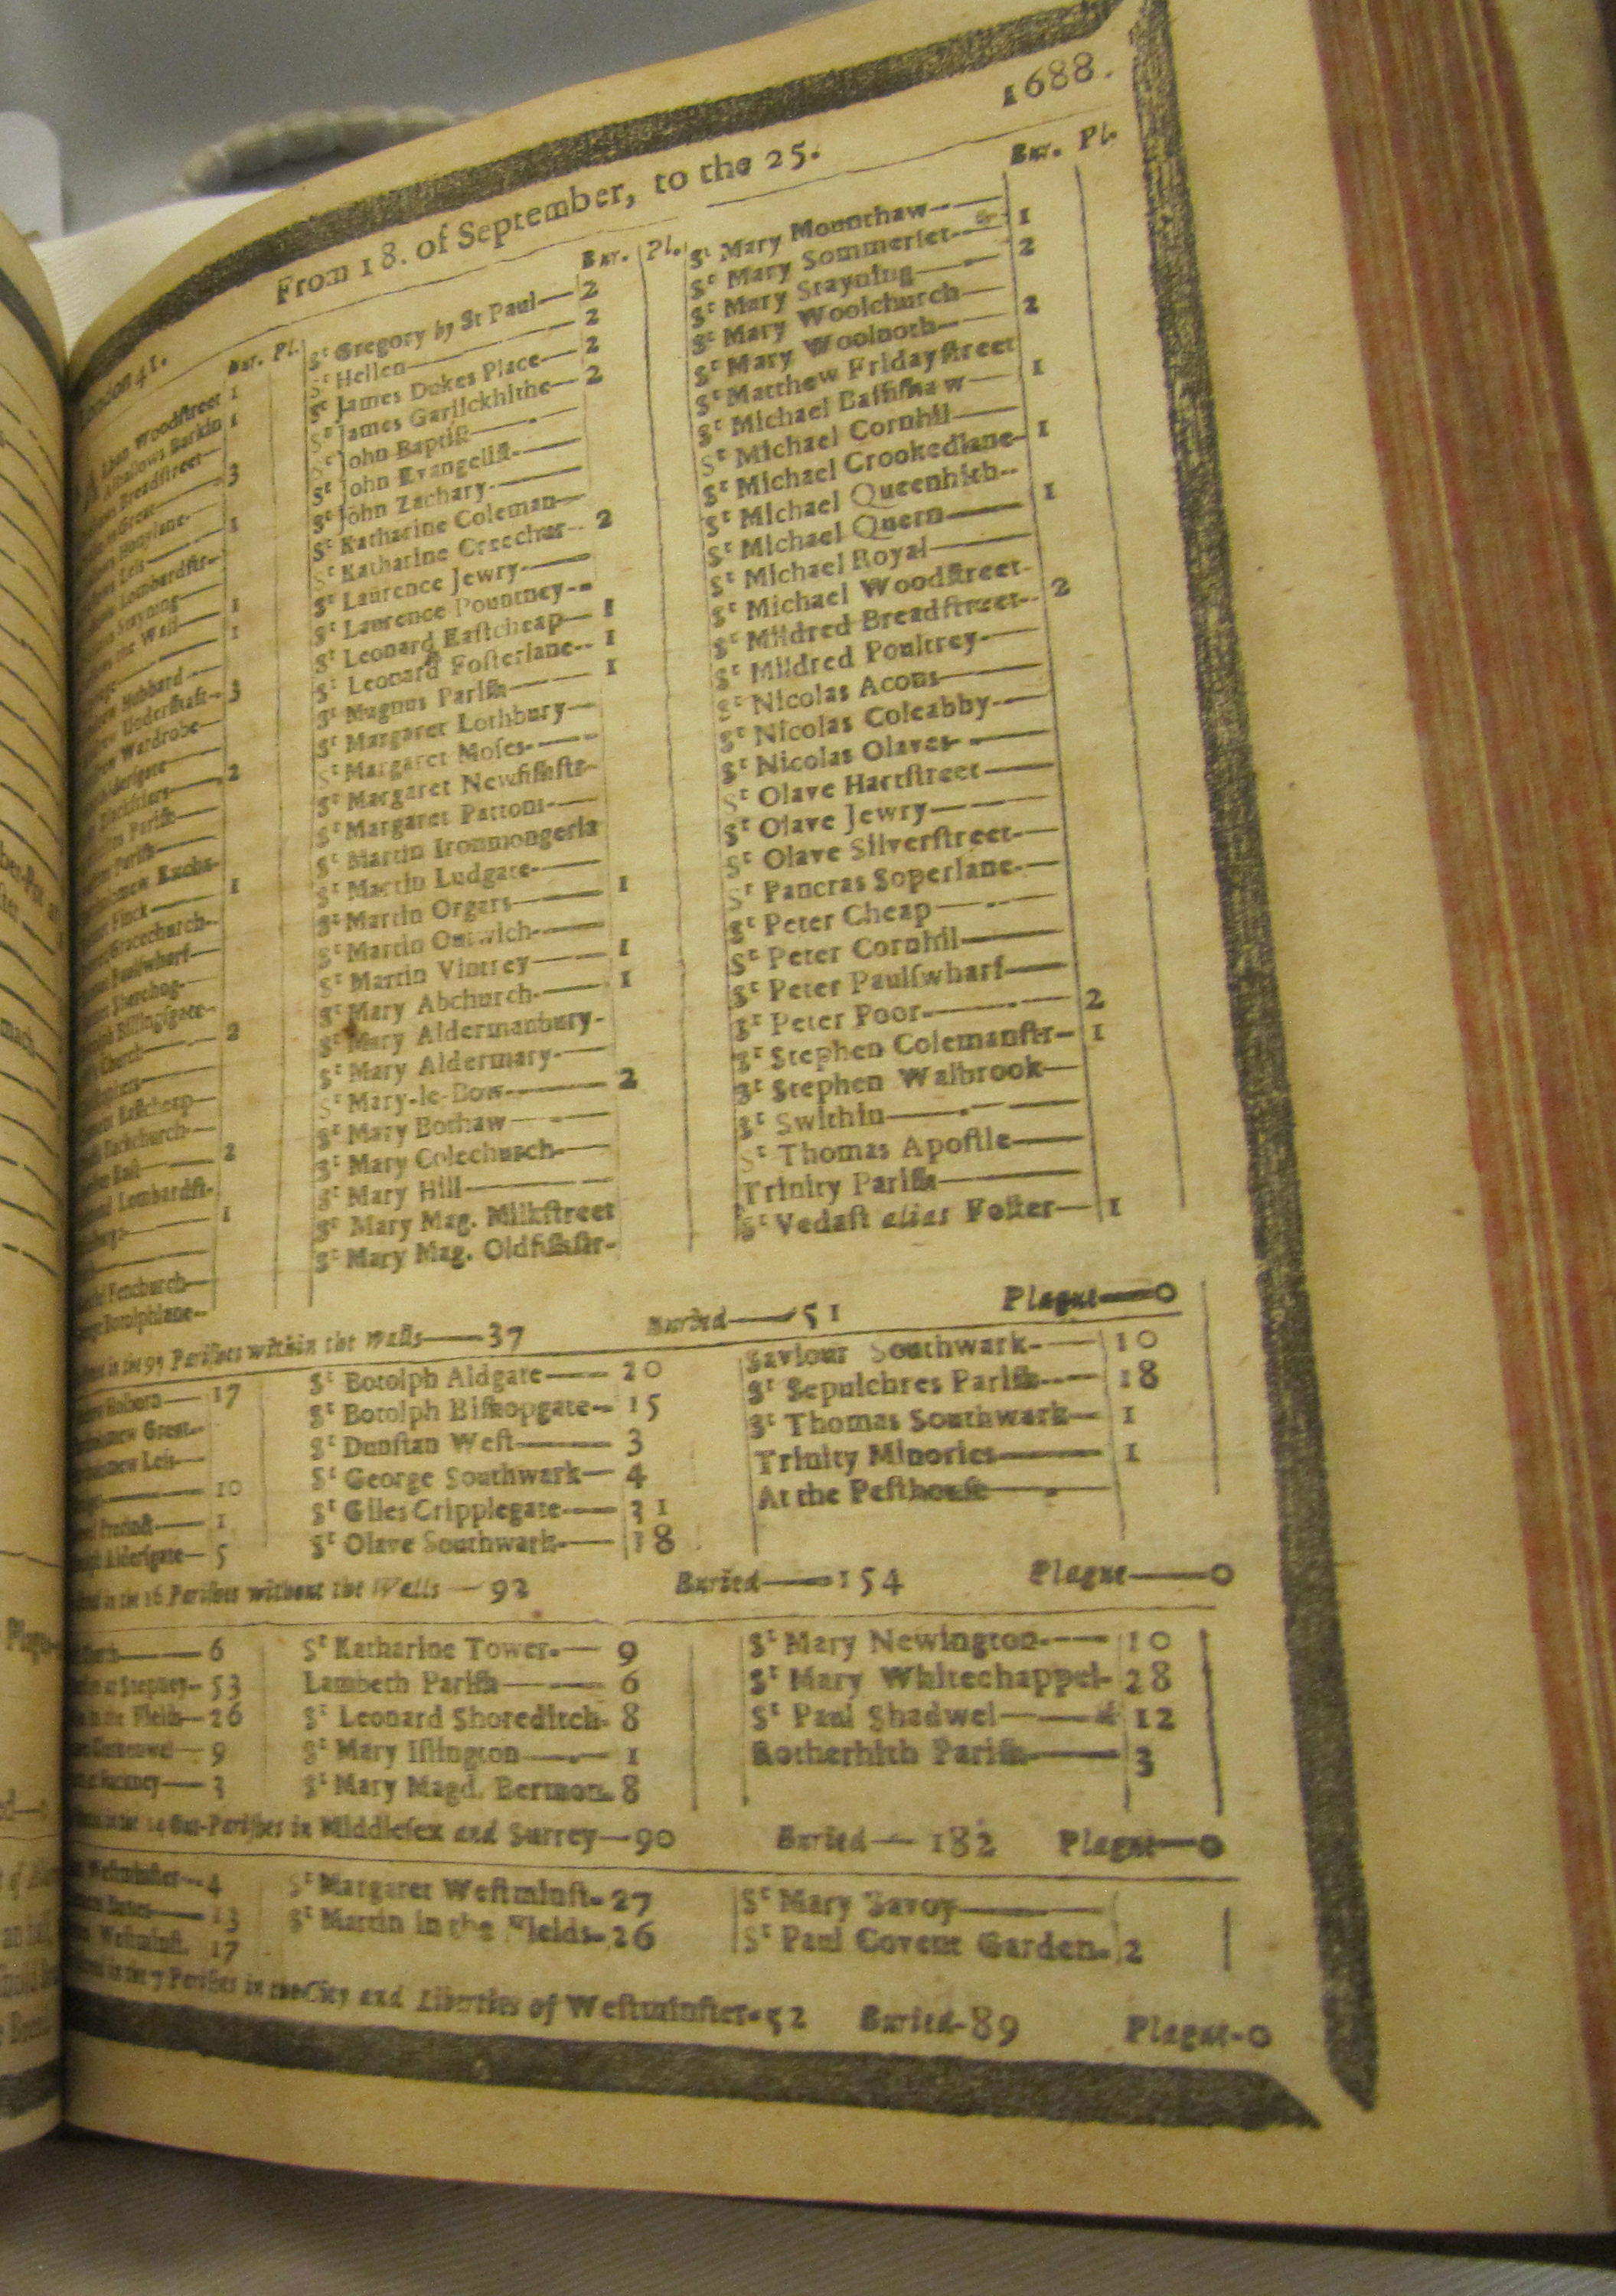 1688.
From 18. of September, to the 25.
London 41.
Bur. Pl.
ALban Woodſtreet 1
Alhallows Barkin 1
Breadſtreet—
Great— 3
Honylane—
Leſs— 1
Lombardſtr-
Stayning—
the Wall— 1
— 1
Hubbard—
Underſhaft- 3
Wardrobe—
Alderſgate—
Blackfriers— 2
Pariſh—
Pariſh—
Finck— 1
Gracechurch-
Paulſwharf—
Sherehog-
Billingſgate-
Church— 2
Eaſtcheap—
Backchurch—
Eaſt— 2
Lombardſt-
— 1
Fenchurch—
Botolphlane-
Bur. Pl.
Sᵗ Gregory by St Paul— 2
Sᵗ Hellen— 2
Sᵗ James Dukes Place— 2
Sᵗ James Garlickhithe— 2
Sᵗ John Baptiſt—
Sᵗ John Evangeliſt—
Sᵗ John Zachary—
Sᵗ Katharine Coleman—
Sᵗ Katharine Creechur-- 2
Sᵗ Laurence Jewry—
Sᵗ Laurence Pountney--
Sᵗ Leonard Eaſtcheap— 1
Sᵗ Leonard Foſterlane-- 1
Sᵗ Magnus Pariſh— 1
Sᵗ Margaret Lothbury—
Sᵗ Margaret Moſes—
Sᵗ Margaret Newfiſhſtr-
Sᵗ Margaret Pattons—
Sᵗ Martin Ironmongerla
Sᵗ Martin Ludgate—
Sᵗ Martin Orgars— 1
Sᵗ Martin Outwich—
Sᵗ Martin Vintrey— 1
Sᵗ Mary Abchurch— 1
Sᵗ Mary Aldermanbury-
Sᵗ Mary Aldermary—
Sᵗ Mary-le-Bow— 2
Sᵗ Mary Bothaw—
Sᵗ Mary Colechurch—
Sᵗ Mary Hill—
Sᵗ Mary Mag. Milkſtreet
Sᵗ Mary Mag. Oldfiſhſtr-
Bur. Pl.
Sᵗ Mary Mounthaw—
Sᵗ Mary Sommerſet— 1
Sᵗ Mary Stayning— 2
Sᵗ Mary Woolchurch—
Sᵗ Mary Woolnoth— 2
Sᵗ Matthew Fridayſtreet
Sᵗ Michael Baſſiſhaw— 1
Sᵗ Michael Cornhil—
Sᵗ Michael Crookedlane- 1
Sᵗ Michael Queenhith--
Sᵗ Michael Quern— 1
Sᵗ Michael Royal—
Sᵗ Michael Woodſtreet-
Sᵗ Mildred Breadſtreet-- 2
Sᵗ Mildred Poultrey—
Sᵗ Nicolas Acons—
Sᵗ Nicolas Coleabby—
Sᵗ Nicolas Olaves—
Sᵗ Olave Hartſtreet—
Sᵗ Olave Jewry—
Sᵗ Olave Silverſtreet—
Sᵗ Pancras Soperlane—
Sᵗ Peter Cheap—
Sᵗ Peter Cornhil—
Sᵗ Peter Paulſwharf—
Sᵗ Peter Poor— 2
Sᵗ Stephen Colemanſtr— 1
Sᵗ Stephen Walbrook—
Sᵗ Swithin—
Sᵗ Thomas Apoſtle—
Trinity Pariſh—
Sᵗ Vedaſt alias Foſter— 1
in the 97 Pariſhes within the Walls—37 Buried—51 Plague—0
Holborn— 17
Great-
Leſs—
— 10
Precinct— 1
Alderſgate— 5
Sᵗ Botolph Aldgate— 20
Sᵗ Botolph Biſhopgate- 15
Sᵗ Dunſtan Weſt— 3
Sᵗ George Southwark— 4
Sᵗ Giles Cripplegate— 31
Sᵗ Olave Southwark— 18
Saviour Southwark— 10
Sᵗ Sepulchres Pariſh— 18
Sᵗ Thomas Southwark— 1
Trinity Minories— 1
At the Peſthouſe—
in the 16 Pariſhes without the Walls—92 Buried—154 Plague—0
— 6
at Stepney- 53
in the Fields— 26
— 9
Hackney— 3
Sᵗ Katharine Tower— 9
Lambeth Pariſh— 6
Sᵗ Leonard Shoreditch- 8
Sᵗ Mary Iſlington— 1
Sᵗ Mary Magd. Bermon- 8
Sᵗ Mary Newington— 10
Sᵗ Mary Whitechappel- 28
Sᵗ Paul Shadwel— 12
Rotherhith Pariſh— 3
in the 14 Out-Pariſhes in Middleſex and Surrey—90 Buried—182 Plague—0
Weſtminſter— 4
Danes— 13
Weſtminſt. 17
Sᵗ Margaret Weſtminſt- 27
Sᵗ Martin in the Fields- 26
Sᵗ Mary Savoy—
Sᵗ Paul Covent Garden- 2
in the 7 Pariſhes in the City and Liberties of Weſtminſter-52 Buried-89 Plague-0